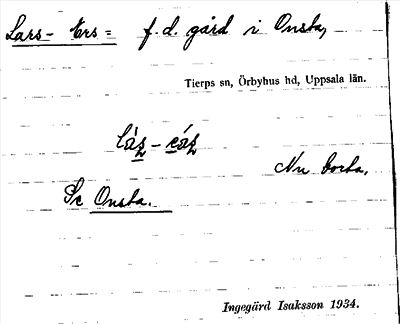 Lars- Ers= f.d. gård i Onsta,
Tierps sn, Örbyhus hd, Uppsala län.
Nu borta.
Se Onsta.
Ingegärd Isaksson 1934.